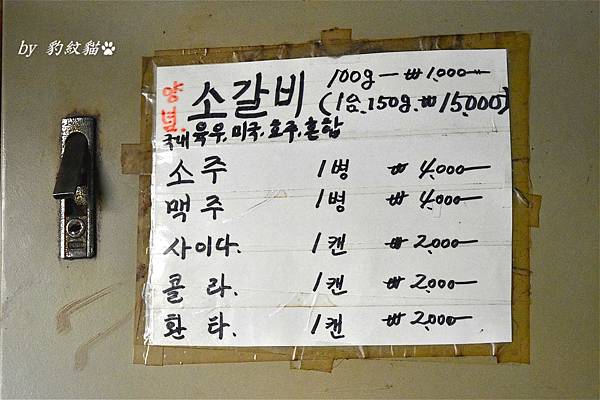 by 豹紋貓
양념 소갈비 100g ₩1,000
(1인 150g ₩15,000)
국내육우, 미국, 호주, 혼합
소주 1병 ₩4,000
맥주 1병 ₩4,000
사이다. 1캔 ₩2,000
콜라. 1캔 ₩2,000
환타. 1캔 ₩2,000